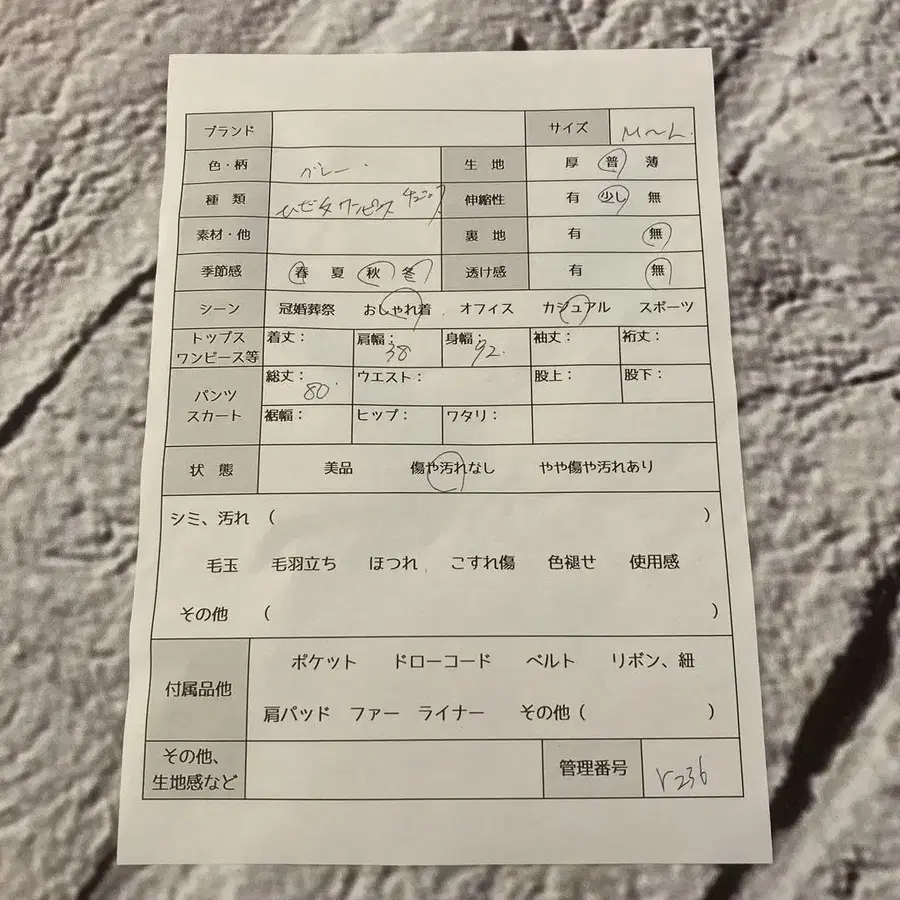 ブランド サイズ M～L.
色・柄 グレー. 生地 厚 普 薄
種類 ひざ丈ワンピース チュニック 伸縮性 有 少し 無
素材・他 裏地 有 無
季節感 春 夏 秋 冬 透け感 有 無
シーン 冠婚葬祭 おしゃれ着 オフィス カジュアル スポーツ
トップス
ワンピース等 着丈： 肩幅：38 身幅：92. 袖丈： 裄丈：
パンツ
スカート
総丈：80. ウエスト： 股上： 股下：
裾幅： ヒップ： ワタリ：
状態 美品 傷や汚れなし やや傷や汚れあり
シミ、汚れ （ ）
毛玉 毛羽立ち ほつれ こすれ傷 色褪せ 使用感
その他 （ ）
付属品他
ポケット ドローコード ベルト リボン、紐
肩パッド ファー ライナー その他（ ）
その他、
生地感など
管理番号 r236